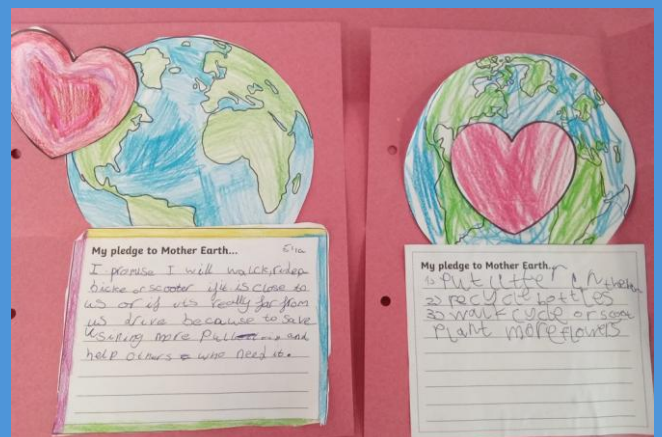 My pledge to Mother Earth...
I promise I will walck, ride a
bicke or scooter if it is close to
us or if its really far from
us drive because to save
us using more and
help others who need it.
My pledge to Mother Earth...
1) Put litter in the bin
2) recycle bottles
3) walk cycle or scoot
Plant more flowers